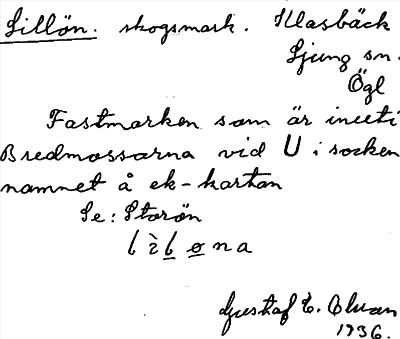 Lillön. skogsmark. Klasbäck
Ljung sn.
Ögl
Fastmarken som är inuti
Bredmossarna vid U i socken
namnet å ek-kartan
Se: Storön
lìlǝna
Gustaf E. Olsson
1936.